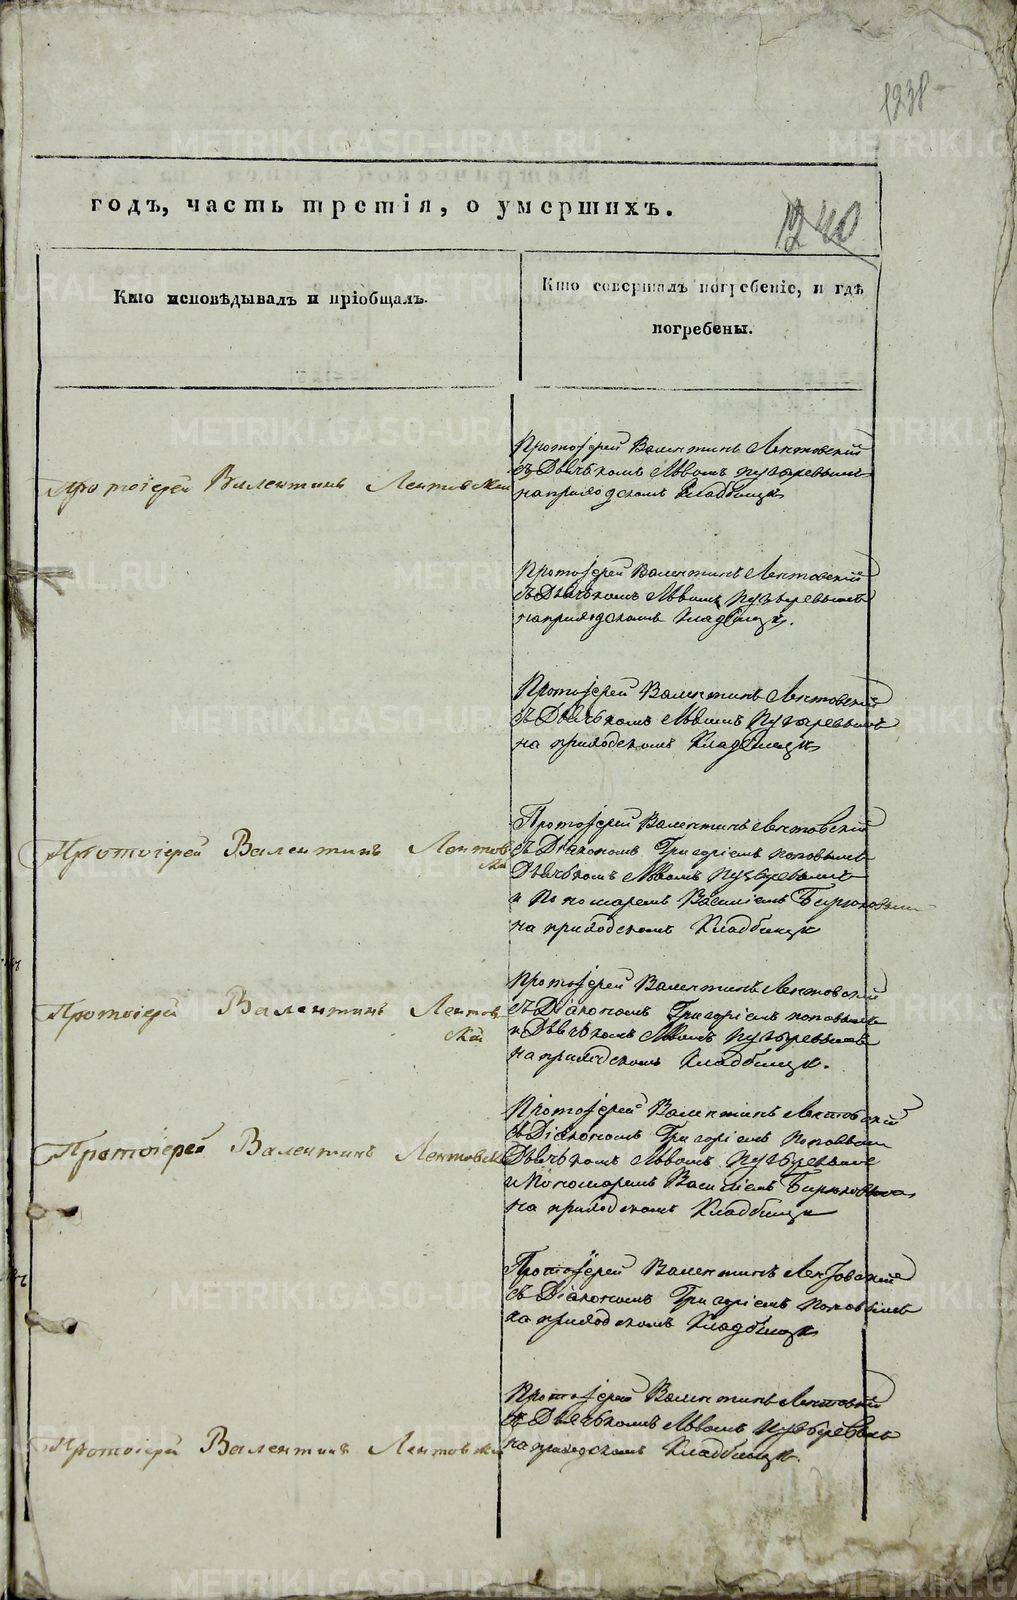 1238
годъ, часть третія, о умершихъ.
1240
Кто исповѣдывалъ и пріобщалъ.
Кто совершалъ погребеніе, и гдѣ
погребены.
Протоіерей Валентинъ Лентовскій
Протоіерей Валентинъ Лентовскій
съ Дьячкомъ Львомъ Пузыревымъ
на приходскомъ Кладбищѣ
Протоіерей Валентинъ Лентовскій
съ Дьячкомъ Львомъ Пузыревымъ
на приходскомъ Кладбищѣ.
Протоіерей Валентинъ Лентовскій
съ Дьячкомъ Львомъ Пузыревымъ
на приходскомъ Кладбищѣ
Протоіерей Валентинъ Лентов
скій
Протоіерей Валентинъ Лентовскій
съ Діакономъ Григоріемъ Поповымъ
Дьячкомъ Львомъ Пузыревымъ
и Пономаремъ Василіемъ Бирюковымъ
на приходскомъ Кладбищѣ
Протоіерей Валентинъ Лентов
скій
Протоіерей Валентинъ Лентовскій
съ Діакономъ Григоріемъ Поповымъ
и Дьячкомъ Львомъ Пузыревымъ
на приходскомъ Кладбищѣ.
Протоіерей Валентинъ Лентовскій
Протоіерей Валентинъ Лентовскій
съ Діакономъ Григоріемъ Поповымъ
Дьячкомъ Львомъ Пузыревымъ
и Пономаремъ Василіемъ Бирюковымъ
на приходскомъ Кладбищѣ
Протоіерей Валентинъ Лентовскій
съ Діакономъ Григоріемъ Поповымъ
на приходскомъ Кладбищѣ
Протоіерей Валентинъ Лентовскій
Протоіерей Валентинъ Лентовскій
съ Дьячкомъ Львомъ Пузыревымъ
на приходскомъ Кладбищѣ.
METRIKI.GASO-URAL.RU